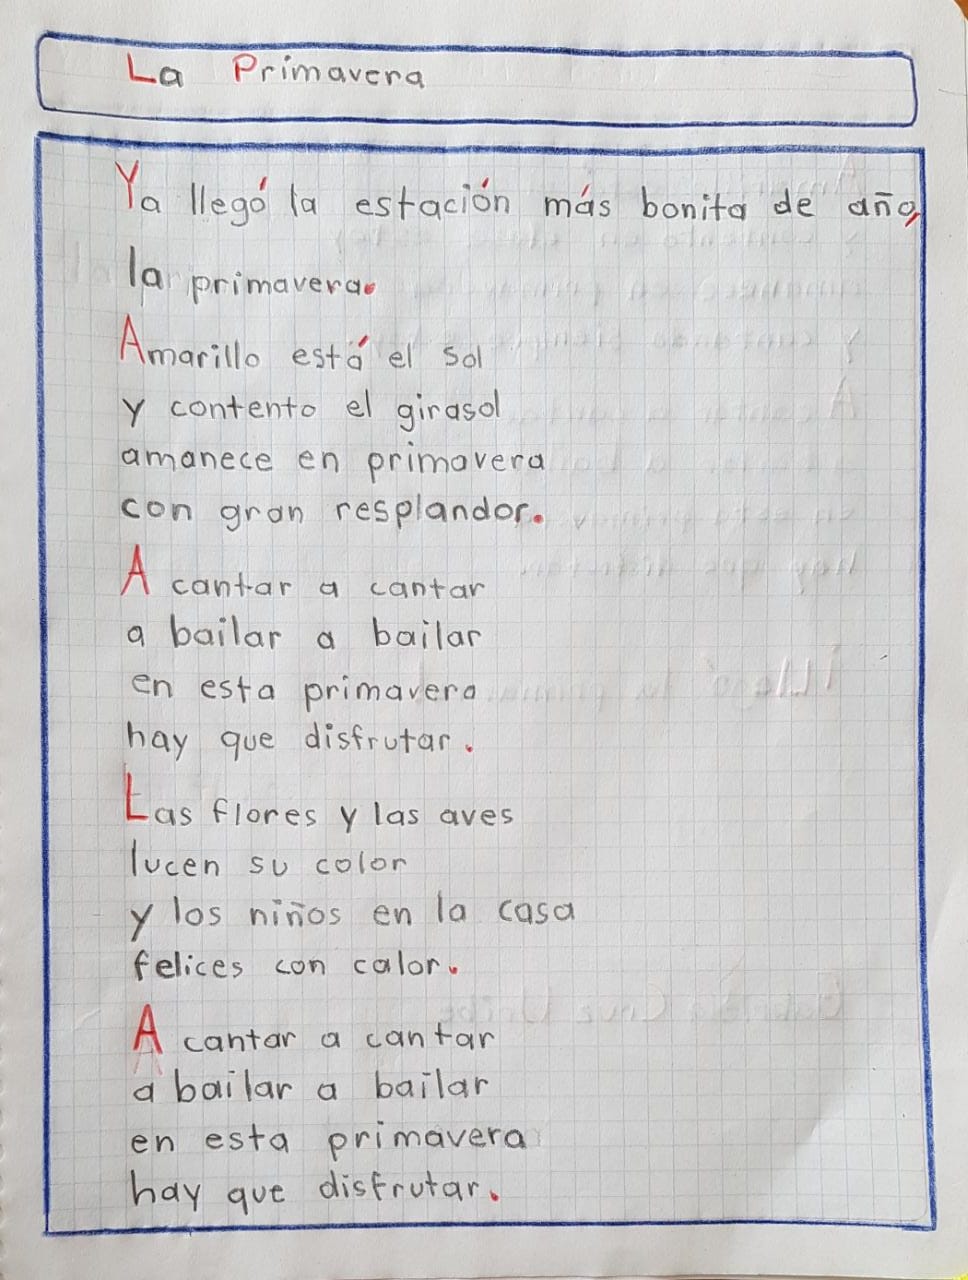 La Primavera
Ya llegó la estación más bonita de año,
la primavera.
Amarillo está el sol
y contento el girasol
amanece en primavera
con gran resplandor.
A cantar a cantar
a bailar a bailar
en esta primavera
hay que disfrutar.
Las flores y las aves
lucen su color
y los niños en la casa
felices con calor.
A cantar a cantar
a bailar a bailar
en esta primavera
hay que disfrutar.